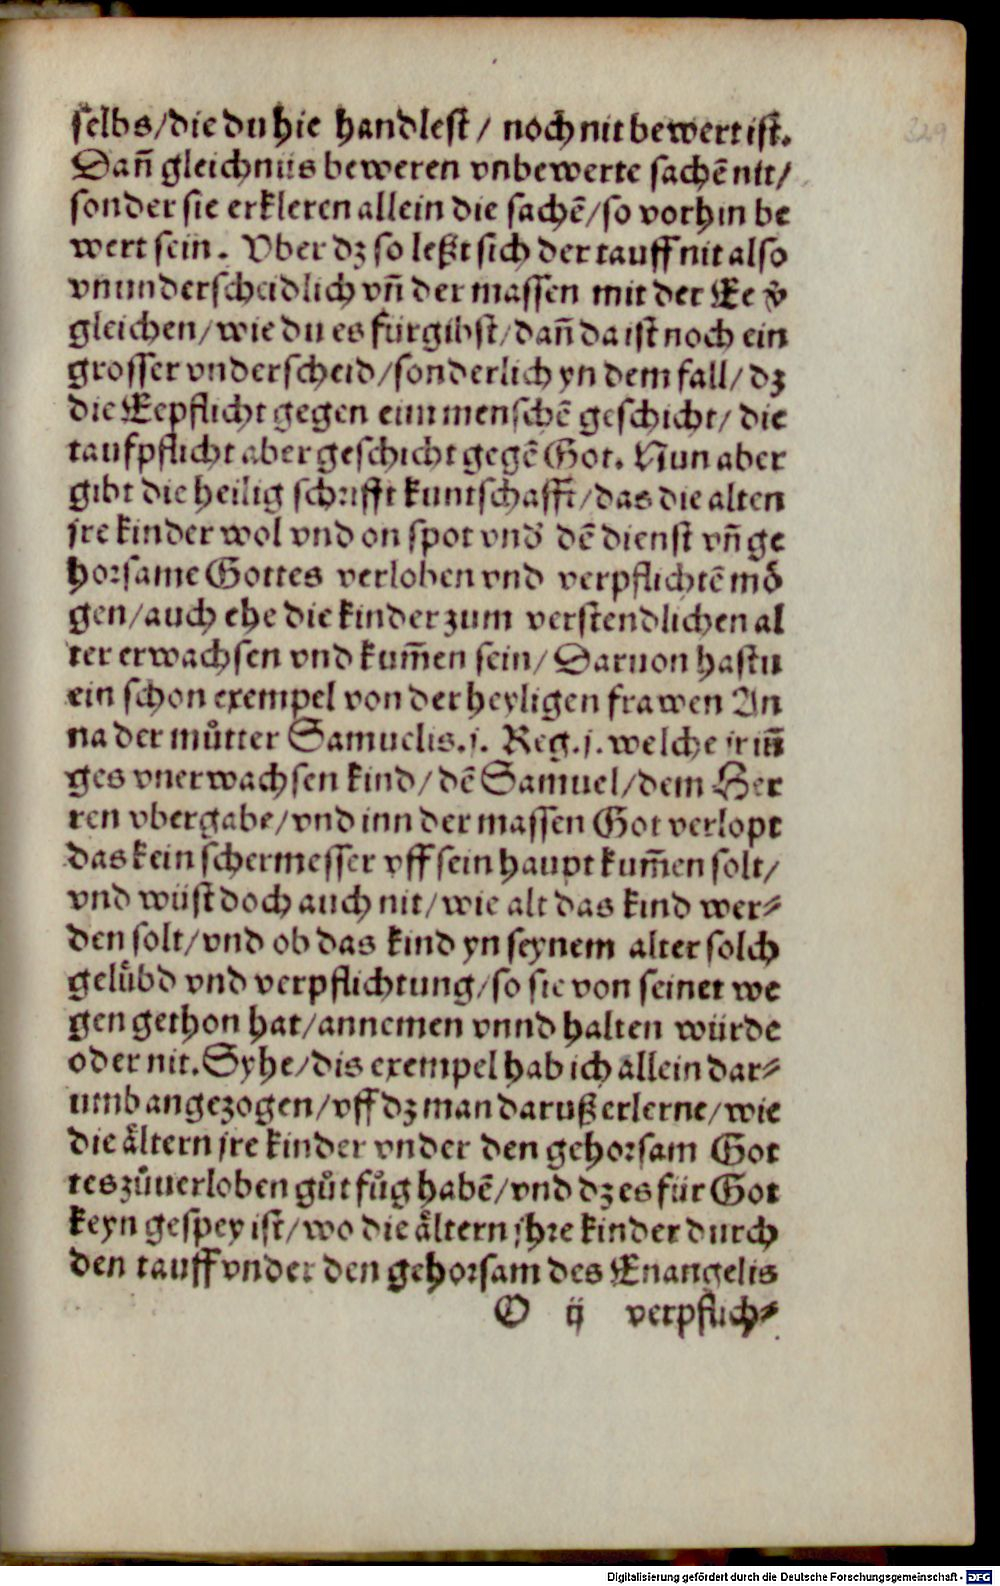 selbs/die du hie handlest/ noch nit bewert ist.
Dañ gleichnüs beweren vnbewerte sachē nit/
sonder sie erkleren allein die sachē/so vorhin be
wert sein. Vber dz so leßt sich der tauff nit also
vnunderscheidlich vñ der massen mit der Ee v̈
gleichen/wie du es fürgibst/dañ da ist noch ein
grosser vnderscheid/sonderlich yn dem fall/dz
die Eepflicht gegen eim menschē geschicht/die
taufpflicht aber geschicht gegē Got. Nun aber
gibt die heilig schrifft kuntschafft/das die alten
jre kinder wol vnd on spot vnd̕ dē dienst vñ ge
horsame Gottes verloben vnd verpflichtē mö
gen/auch ehe die kinder zum verstendlichen al
ter erwachsen vnd kum̄en sein/Daruon hastu
ein schon exempel von der heyligen frawen An
na der můtter Samuelis.j. Reg.j. welche jr iun̄
ges vnerwachsen kind/dē Samuel/dem Her
ren vbergabe/vnd inn der massen Got verlopt
das kein schermesser vff sein haupt kum̄en solt/
vnd wüst doch auch nit/wie alt das kind wer⸗
den solt/vnd ob das kind yn seynem alter solch
gelübd vnd verpflichtung/so sie von seinet we
gen gethon hat/annemen vnnd halten würde
oder nit. Syhe/dis exempel hab ich allein dar⸗
umb angezogen/vff dz man daruß erlerne/wie
die ältern jre kinder vnder den gehorsam Got
tes zůuerloben gůt fůg habē/vnd dz es für Got
keyn gespey ist/wo die ältern jhre kinder durch
den tauff vnder den gehorsam des Enangelis
O ij verpflich⸗
329
Digitalisierung gefördert durch die Deutsche Forschungsgemeinschaft - DFG